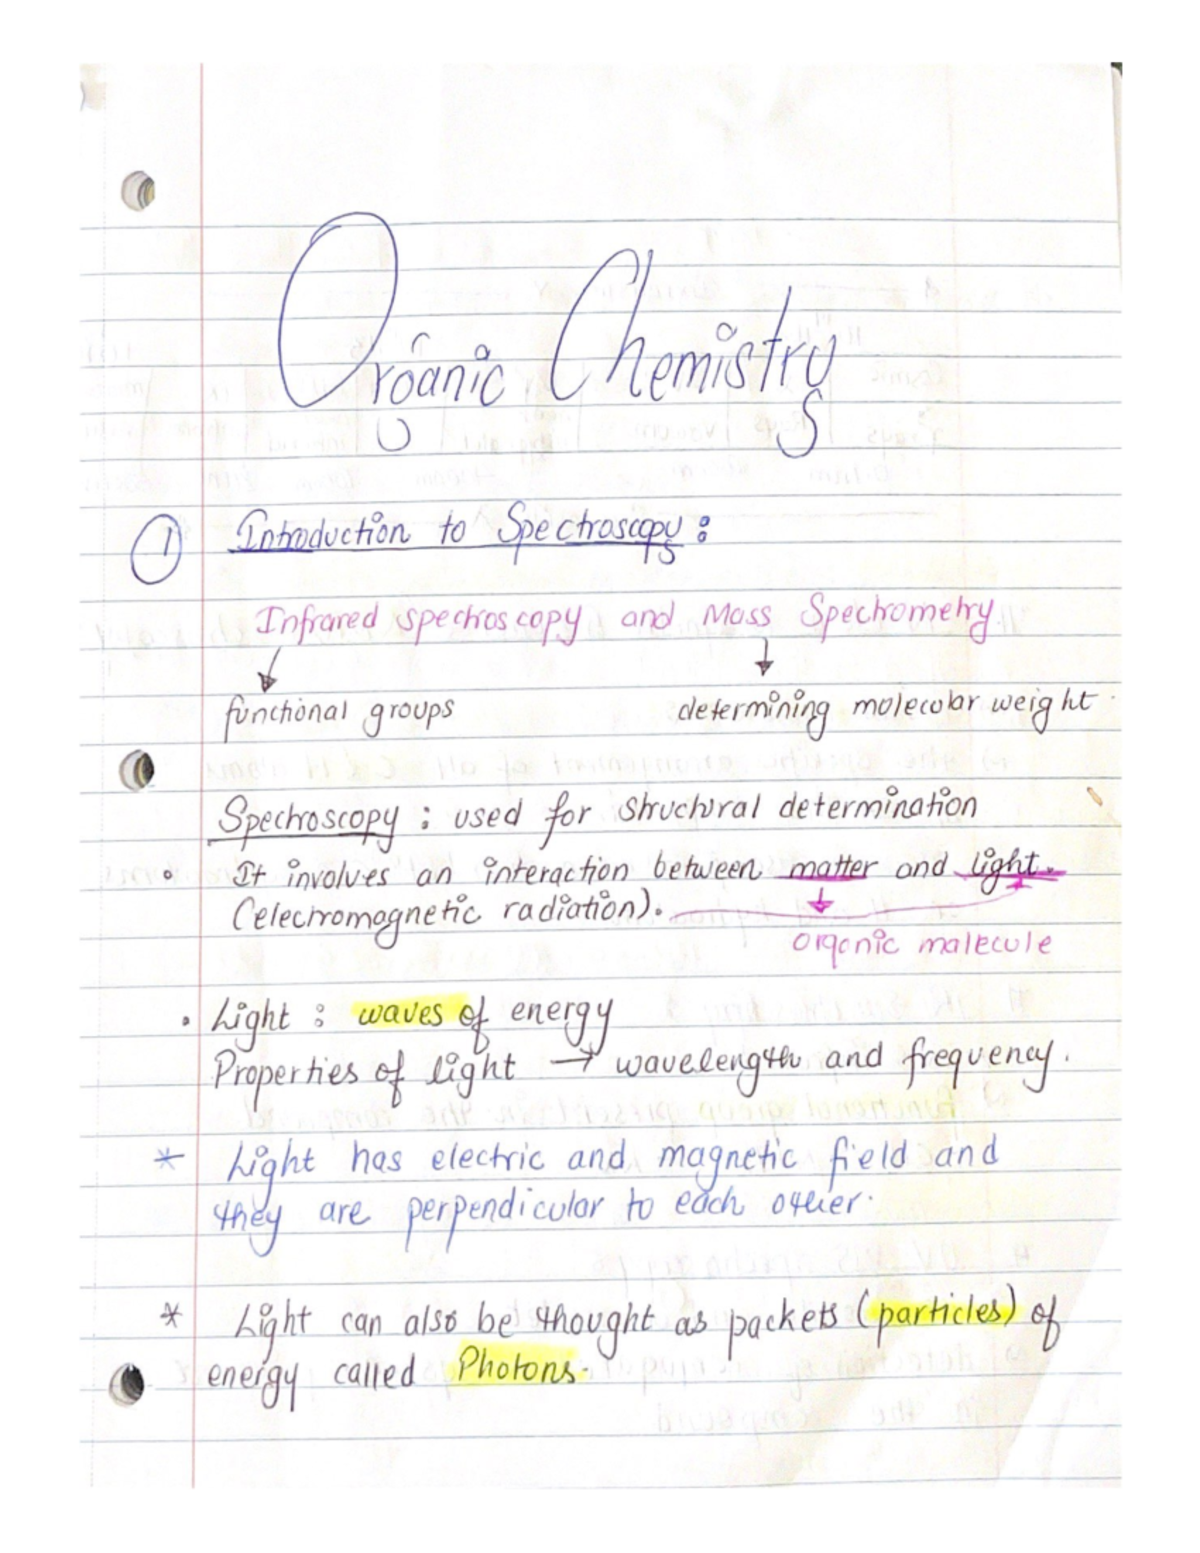 Organic Chemistry
① Introduction to Spectroscopy:
Infrared spectroscopy and Mass Spectrometry
functional groups determining molecular weight.
Spectroscopy: used for structural determination
° It involves an interaction between matter and light.
(electromagnetic radiation).
organic molecule
• Light: waves of energy
Properties of light → wavelength and frequency.
* Light has electric and magnetic field and
they are perpendicular to each other.
* Light can also be thought as packets (particles) of
energy called Photons.